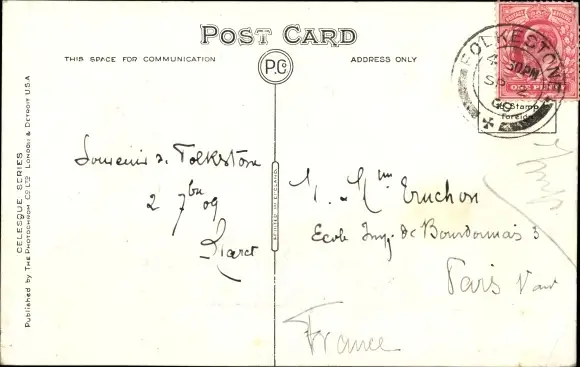 POST CARD
THIS SPACE FOR COMMUNICATION
P.C
ADDRESS ONLY
FOLKESTONE
4.30PM
SP 2
09
ONE PENNY
Stamp
foreign
CELESQUE SERIES
Published by THE PHOTOCHROM CO LTD LONDON & DETROIT U.S.A
PRINTED IN ENGLAND
Souvenir de Folkstone
2 7bre 09
M. Mme Truchon
Ecole de Bourdonnais 3
Paris
France